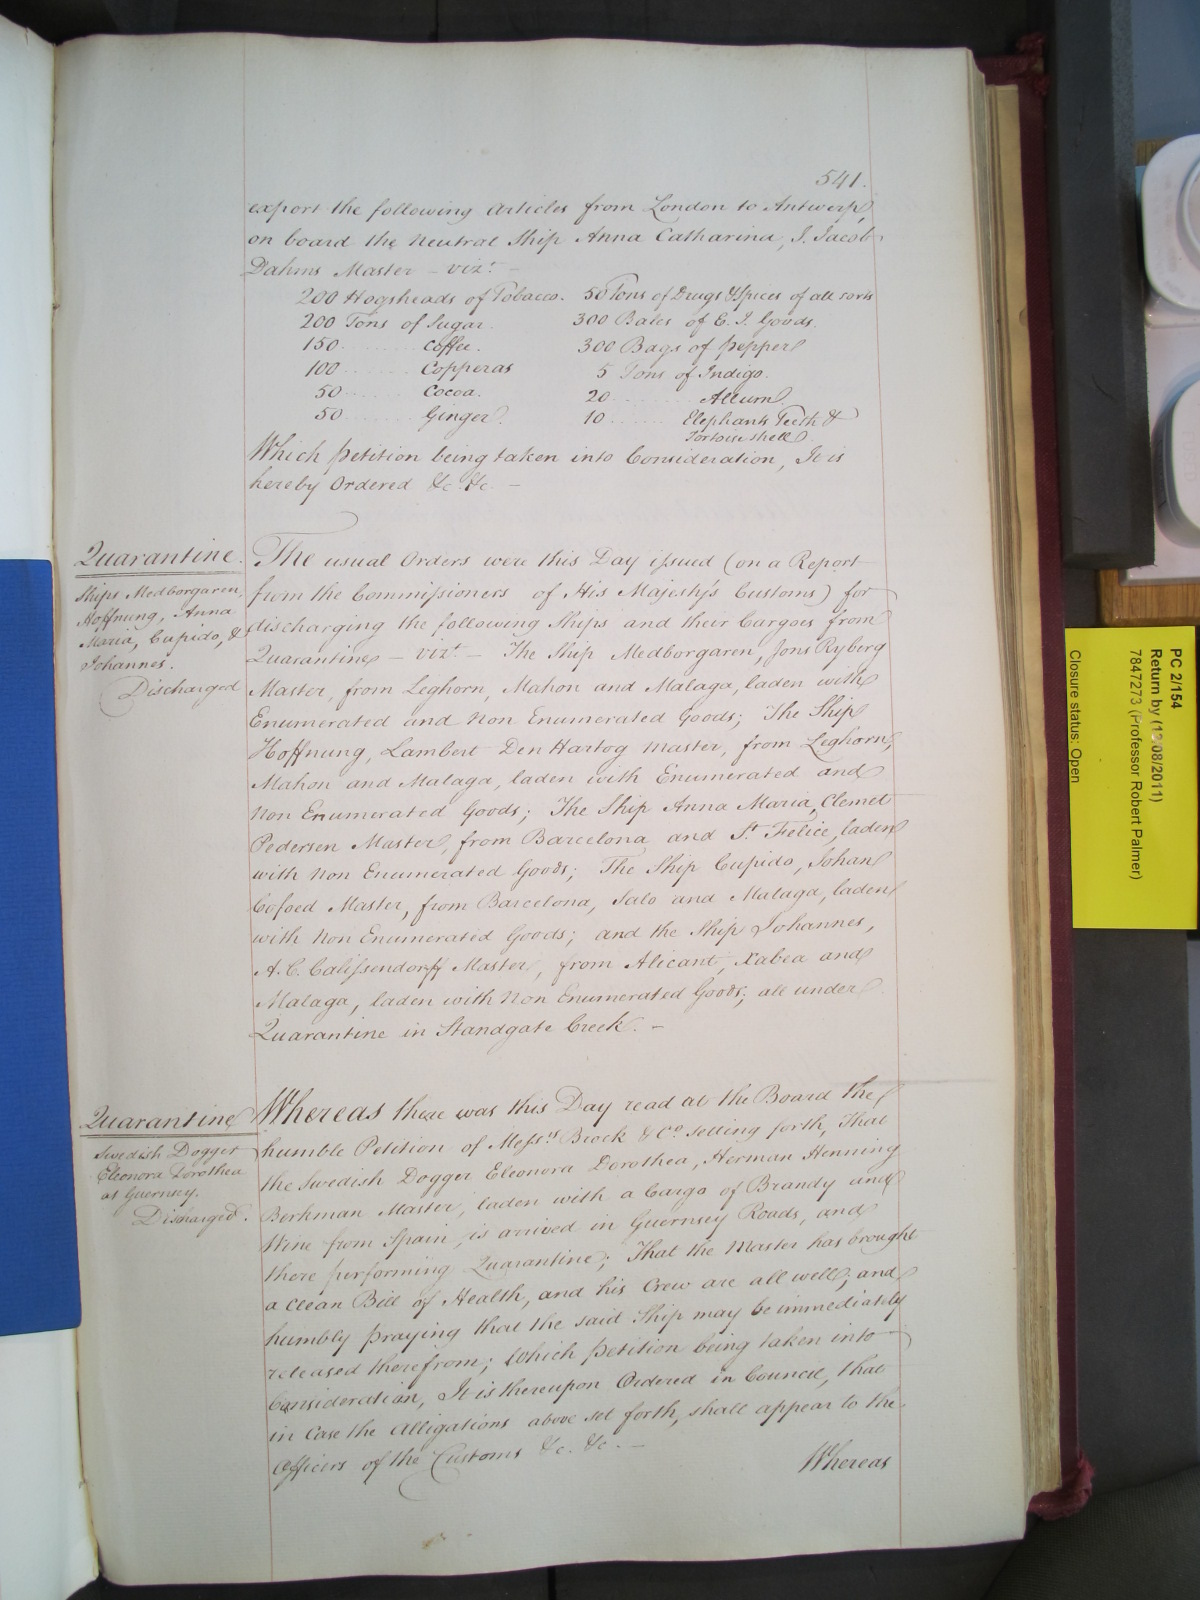 541.
export the following Articles from London to Antwerp,
on board the Neutral Ship Anna Catharina, J. Jacob
Dahms Master – vizt. –
200 Hogsheads of Tobacco. 50 Tons of Drugs & Spices of all sorts
200 Tons of Sugar. 300 Bales of E. I. Goods.
150 ........ Coffee. 300 Bags of Pepper
100 ........ Copperas 5 Tons of Indigo.
50 ........ Cocoa. 20 ........ Allum.
50 ........ Ginger. 10 ........ Elephants Teeth &
Tortoiseshell.
Which Petition being taken into Consideration, It is
hereby Ordered &c. &c. –
Quarantine.
Ships Medborgaren,
Hoffnung, Anna
Maria, Cupido, &
Johannes.
Discharged
The usual Orders were this Day issued (on a Report
from the Commissioners of His Majesty's Customs) for
discharging the following Ships and their Cargoes from
Quarantine – vizt. – The Ship Medborgaren, Jons Ryberg
Master, from Leghorn, Mahon and Malaga, laden with
Enumerated and Non Enumerated Goods; The Ship
Hoffnung, Lambert Den Hartog Master, from Leghorn,
Mahon and Malaga, laden with Enumerated and
Non Enumerated Goods; The Ship Anna Maria, Clemet
Pedersen Master, from Barcelona and St. Felice, laden
with Non Enumerated Goods; The Ship Cupido, Johan
Cofoed Master, from Barcelona, Salo and Malaga, laden
with Non Enumerated Goods; and the Ship Johannes,
A. C. Calissendorff Master, from Alicant, Xabea and
Malaga, laden with Non Enumerated Goods; all under
Quarantine in Standgate Creek. –
Quarantine
Swedish Dogger
Eleonora Dorothea
at Guernsey.
Discharged.
Whereas there was this Day read at the Board the
humble Petition of Messrs. Brock & Co. setting forth, That
the Swedish Dogger Eleonora Dorothea, Herman Henning
Berkman Master, laden with a Cargo of Brandy and
Wine from Spain, is arrived in Guernsey Roads, and
there performing Quarantine; That the Master has brought
a clean Bill of Health, and his Crew are all well; and
humbly praying that the said Ship may be immediately
released therefrom; Which Petition being taken into
Consideration, It is thereupon Ordered in Council, that
in Case the Alligations above set forth, shall appear to the
Officers of the Customs &c. &c. –
Whereas
PC 2/154
Return by (12/08/2011)
7847273 (Professor Robert Palmer)
Closure status: Open